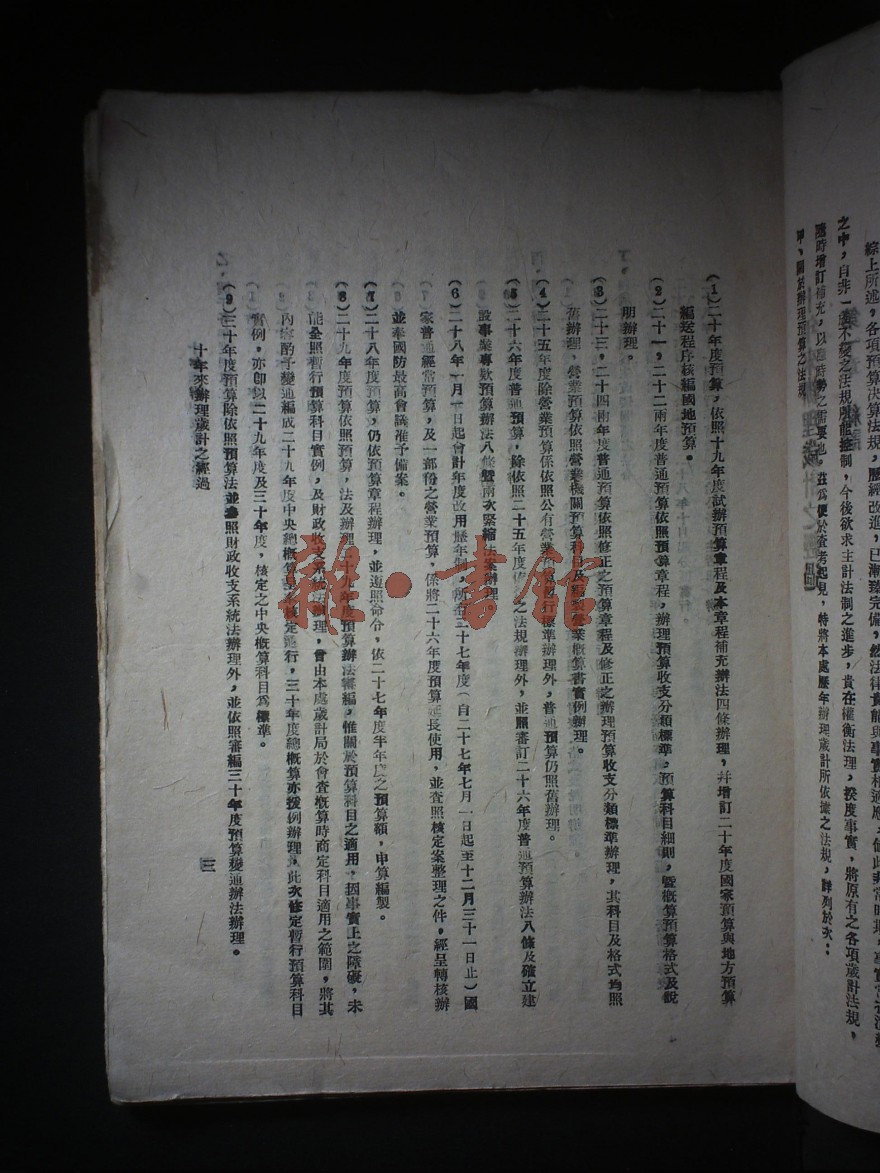 綜上所述，各項預算決算法規，歷經改進，已漸臻完備，然法律貴能與事實相適應，值此非常時期，事實
之中，自非一成不變之法規所能控制，今後欲求主計法制之進步，貴在權衡法理，揆度事實，將原有之各項歲計法規，
隨時增訂補充，以應時勢之需要也，茲為便於查考起見，特將本處歷年辦理歲計所依據之法規，詳列於次：
甲、關於辦理預算之法規
(1)二十年度預算，依照十九年度試辦預算章程及本章程補充辦法四條辦理，并增訂二十年度國家預算與地方預算
編送程序核編國地預算。
(2)二十一，二十二兩年度普通預算依照預算章程，辦理預算收支分類標準，預算科目細則，暨概算預算格式及說
明辦理。
(3)二十三，二十四兩年度普通預算依照修正之預算章程及修正之辦理預算收支分類標準辦理，其科目及格式均照
舊辦理，營業預算依照營業機關預算科目及編製營業概算書實例辦理。
(4)二十五年度除營業預算係依照公有營業預算暫行標準辦理外，普通預算仍照舊辦理。
(5)二十六年度普通預算，除依照二十五年度之法規辦理外，並照審訂二十六年度普通預算辦法八條及確立建
設事業專款預算辦法八條暨兩次緊縮法案辦理
(6)二十八年一月一日起會計年度改用曆年制，所有二十七年度(自二十七年七月一日起至十二月三十一日止)國
家普通經常預算，及一部份之營業預算，係將二十六年度預算延長使用，並查照核定案整理之件，經呈轉核辦
並奉國防最高會議准予備案。
(7)二十八年度預算，仍依預算章程辦理，並遵照命令，依二十七年度半年度之預算額，申算編製。
(8)二十九年度預算依照預算，法及辦理二十九年度預算辦法審編，惟關於預算科目之適用，因事實上之障礙，未
能全照暫行預算科目實例，及財政收支系統法辦理，曾由本處歲計局於會查概算時商定科目適用之範圍，將其
內容酌予變通編成二十九年度中央總概算呈核定施行，三十年度總概算亦援例辦理，此次修定暫行預算科目
實例，亦卽以二十九年度及三十年度，核定之中央概算科目為標準。
(9)三十年度預算除依照預算法並參照財政收支系統法辦理外，並依照審編三十年度預算變通辦法辦理。
十年來辦理歲計之經過
三
雜·書館